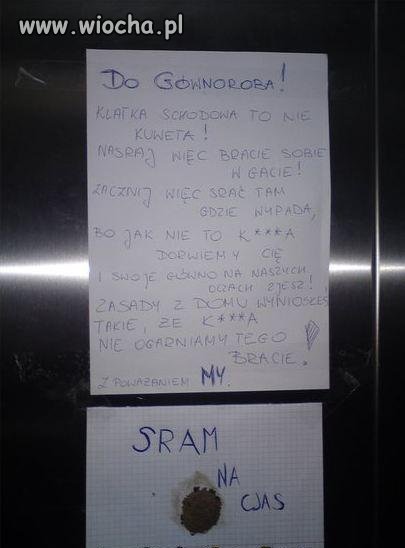 www.wiocha.pl
DO GÓWNOROBA!
KLATKA SCHODOWA TO NIE
KUWETA!
NASRAJ WIĘC BRACIE SOBIE
W GACIE!
ZACZNIJ WIĘC SRAĆ TAM
GDZIE WYPADA,
BO JAK NIE TO K***A
DORWIEMY CIĘ
I SWOJE GÓWNO NA NASZYCH
OCZACH ZJESZ!
ZASADY Z DOMU WYNIOSŁEŚ
TAKIE, ŻE K***A
NIE OGARNIAMY TEGO
BRACIE!
Z POWAŻANIEM MY.
SRAM
NA
CJAS